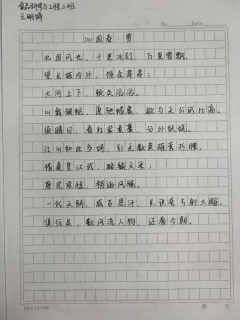 食品科学与工程三班
王明婧
沁园春·雪
北国风光，千里冰封，万里雪飘。
望长城内外，惟余莽莽；
大河上下，顿失滔滔。
山舞银蛇，原驰蜡象，欲与天公试比高。
须晴日，看红装素裹，分外妖娆。
江山如此多娇，引无数英雄竞折腰。
惜秦皇汉武，略输文采；
唐宗宋祖，稍逊风骚。
一代天骄，成吉思汗，只识弯弓射大雕。
俱往矣，数风流人物，还看今朝。
No.
Date